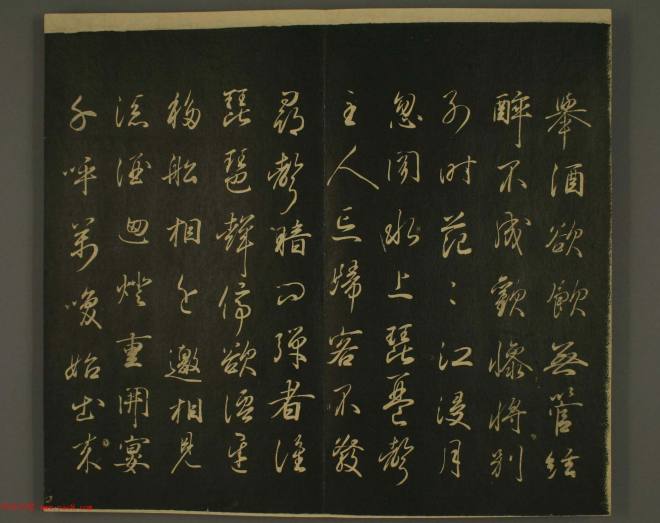 舉酒欲飲無管絃
醉不成歡慘將別
別時茫〻江浸月
忽聞水上琵琶聲
主人忘歸客不發
尋聲暗問彈者誰
琵琶聲停欲語遲
移船相近邀相見
添酒迴燈重開宴
千呼萬喚始出來